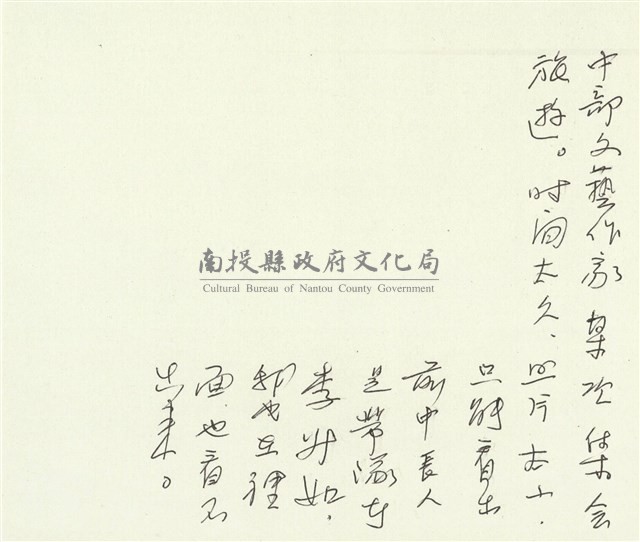 中部文藝作家某次集会
旅遊。时间太久、照片太小、
只能看出
前中長人
是帶隊
李升如，
我也在裡
面也看不
出來。
南投縣政府文化局
Cultural Bureau of Nantou County Government